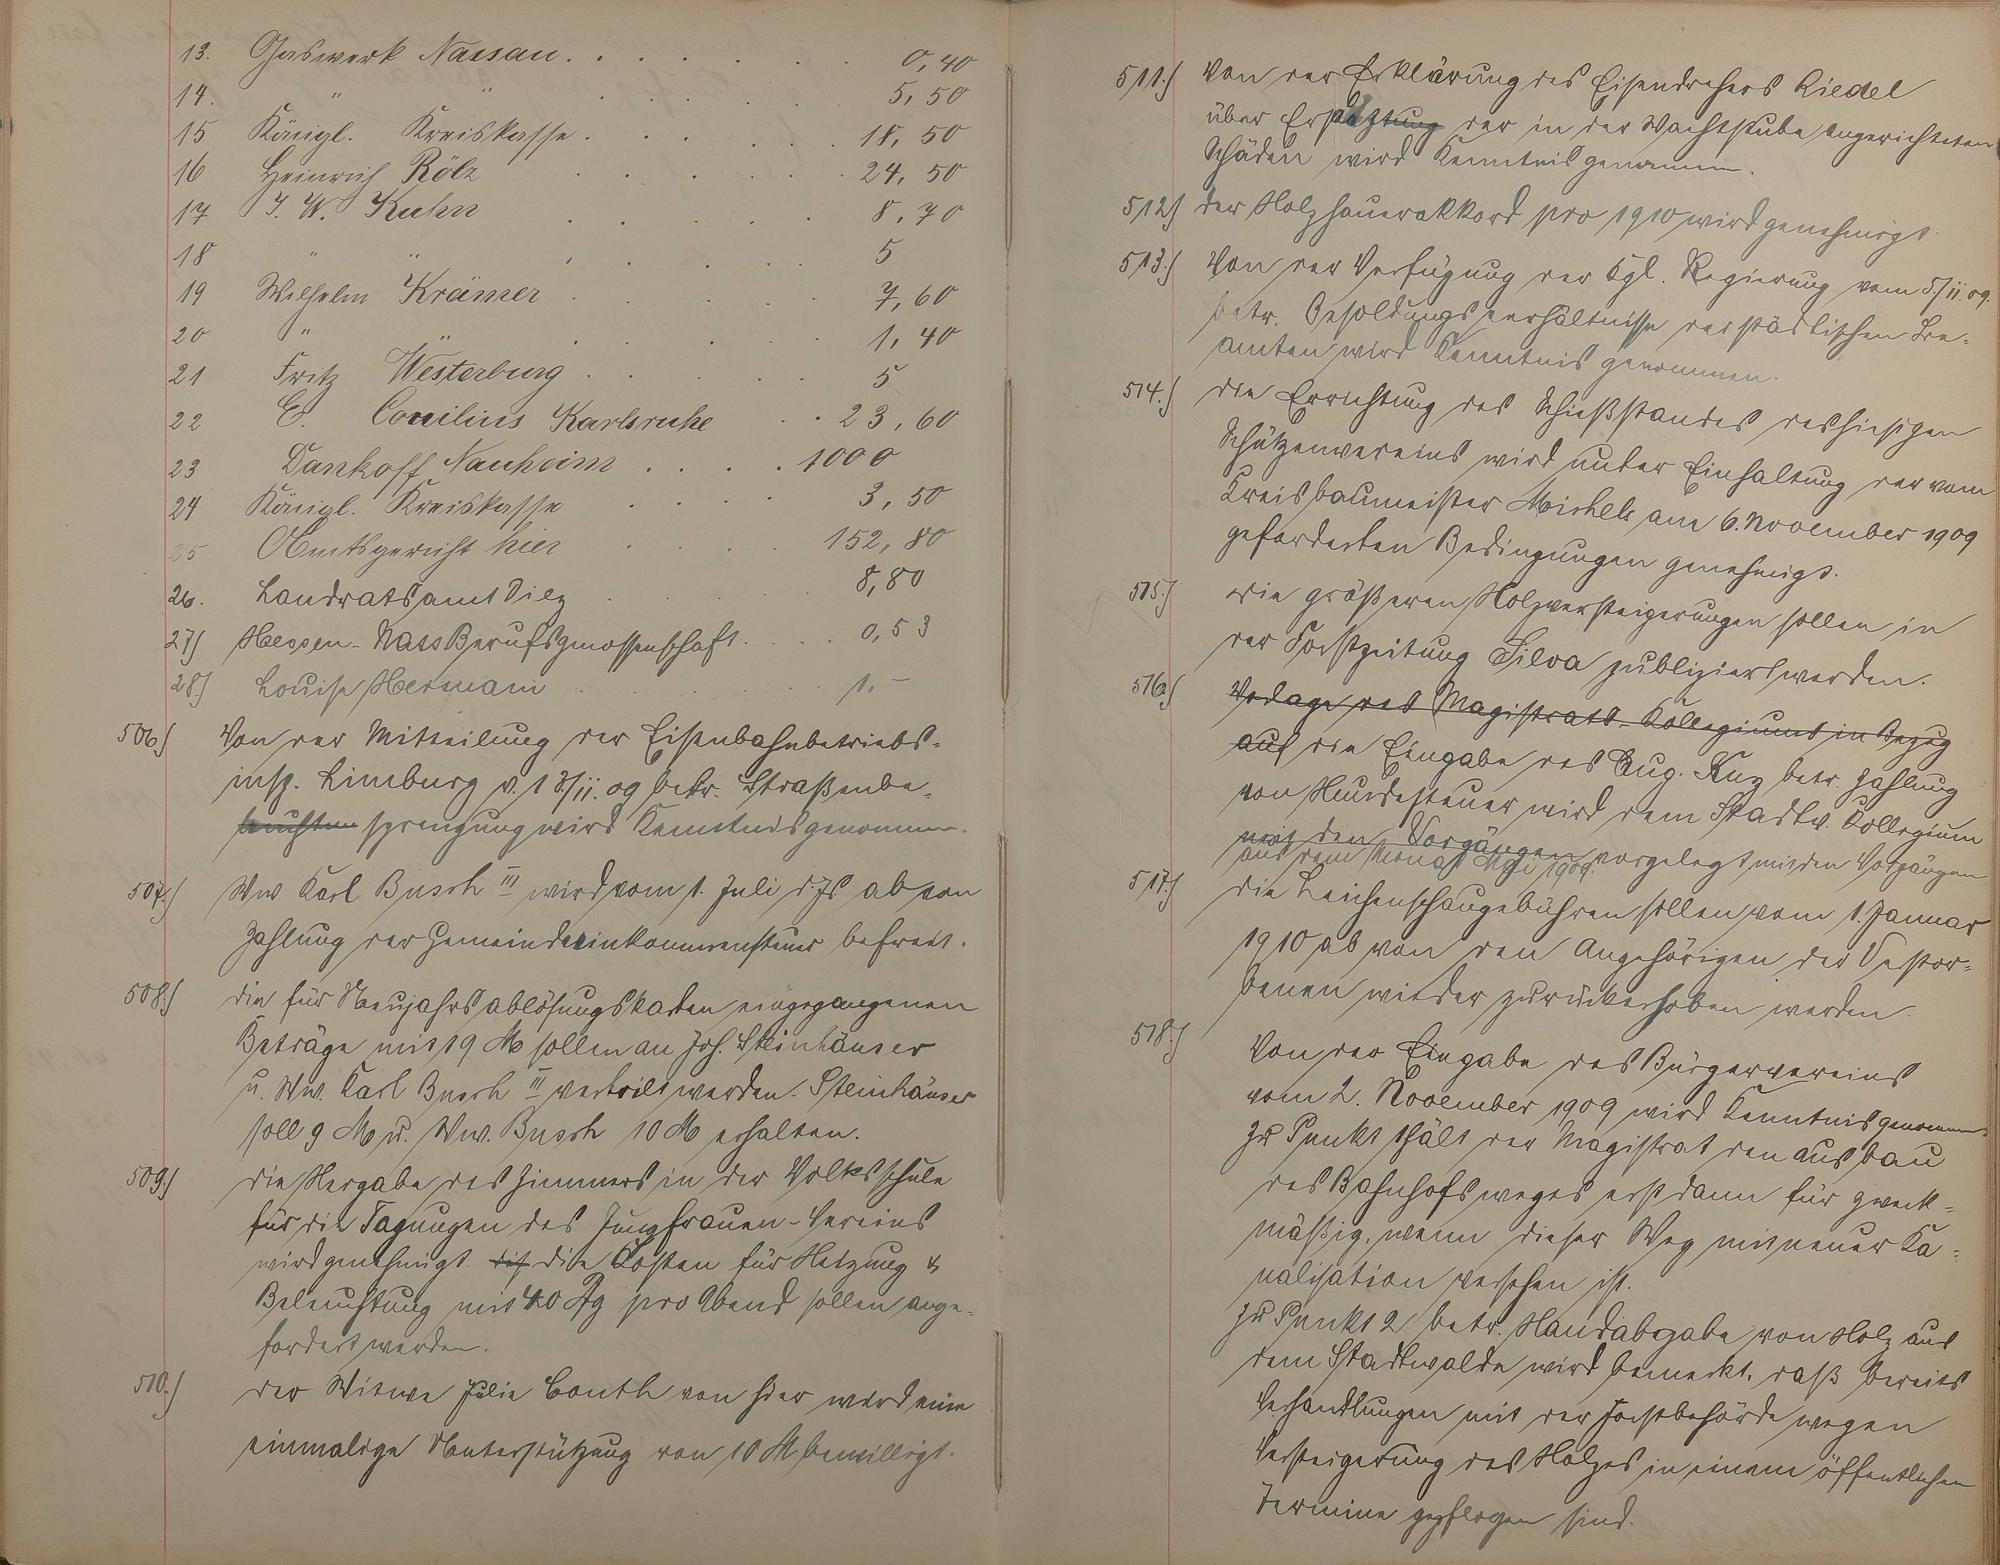 13. Gaswerk Nassau. . . . . . . 0,40
14. " " . . . . . 5,50
15 Königl. Kreiskasse . . . . . 18,50
16 Heinrich Rölz . . . . . . 24,50
17 J. W. Kuhn . . . . . 8,70
18 " " . . . . . 5
19 Wilhelm Krämer . . . . . 7,60
20 " " . . . . . 1,40
21 Fritz Westerburg . . . . . 5
22 C. Conilius Karlsruhe . . 23,60
23 Dankoff Nauheim . . . . 1000
24 Königl. Kreiskasse . . . 3,50
25 Amtsgericht hier . . . . 152,80
26. Landratsamt Diez . . . . 8,80
27) Hessen-Nass Berufsgenossenschaft . . . . 0,53
28) Louise Hermani . . . . . 1.-
506) Von der Mitteilung der Eisenbahnbetriebs-
insp. Limburg v. 13/11. 09 betr. Straßenbe-
leuchten sprengung wird Kenntnis genommen.
507) Ww. Karl Busch III wird vom 1. Juli d. Js ab von
Zahlung der Gemeindeeinkommensteuer befreit.
508) Die für Neujahrsablösungskarten eingegangenen
Beträge mit 19 M sollen an Joh. Steinhäuser
u. Ww. Karl Busch III verteilt werden. Steinhäuser
soll 9 M u. Ww. Busch 10 M erhalten.
509) Die Hergabe des Zimmers in der Volksschule
für die Tagungen des Jungfrauen-Vereins
wird genehmigt. die Kosten für Heizung &
Beleuchtung mit 40 Pfg pro Abend sollen ange-
fordert werden.
510) Der Witwe Julie Bonth von hier wird eine
einmalige Unterstützung von 10 M bewilligt.
511.) Von der Erklärung des Eisendrehers Riedel
über Ersatz der in der Wachtstube angerichteten
Schäden wird Kenntnis genommen.
512) Der Holzhauerakkord pro 1910 wird genehmigt.
513.) Von der Verfügung der Kgl. Regierung vom 5/11. 09.
betr. Besoldungsverhältnisse der städtischen Be-
amten wird Kenntnis genommen.
514.) Die Errichtung des Schießstandes des hiesigen
Schützenvereins wird unter Einhaltung der vom
Kreisbaumeister Michels am 6. November 1909
geforderten Bedingungen genehmigt.
515.) Die größeren Holzversteigerungen sollen in
der Forstzeitung Silva publiziert werden.
516) Vorlage des Magistrats-Kollegiums in Bezug
auf die Eingabe des Aug. Kuz betr. Zahlung
von Hundesteuer wird dem Stadtv. Kollegium
mit den Vorgängen vorgelegt mit den Vorgängen
aus dem Monat Mai 1909.
517) Die Leichenschaugebühren sollen vom 1. Januar
1910 ab von den Angehörigen der Verstor-
benen wieder zurückerhoben werden.
518.) Von der Eingabe des Bürgervereins
vom 2. November 1909 wird Kenntnis genommen.
Zu Punkt 1 hält der Magistrat den Ausbau
des Bahnhofsweges erst dann für zweck-
mäßig, wenn dieser Weg mit neuer Ka-
nalisation versehen ist.
Zu Punkt 2 betr. Handabgabe von Holz aus
dem Stadtwalde wird bemerkt, daß bereits
Verhandlungen mit der Forstbehörde wegen
Versteigerung des Holzes in einem öffentlichen
Termine gepflogen sind.